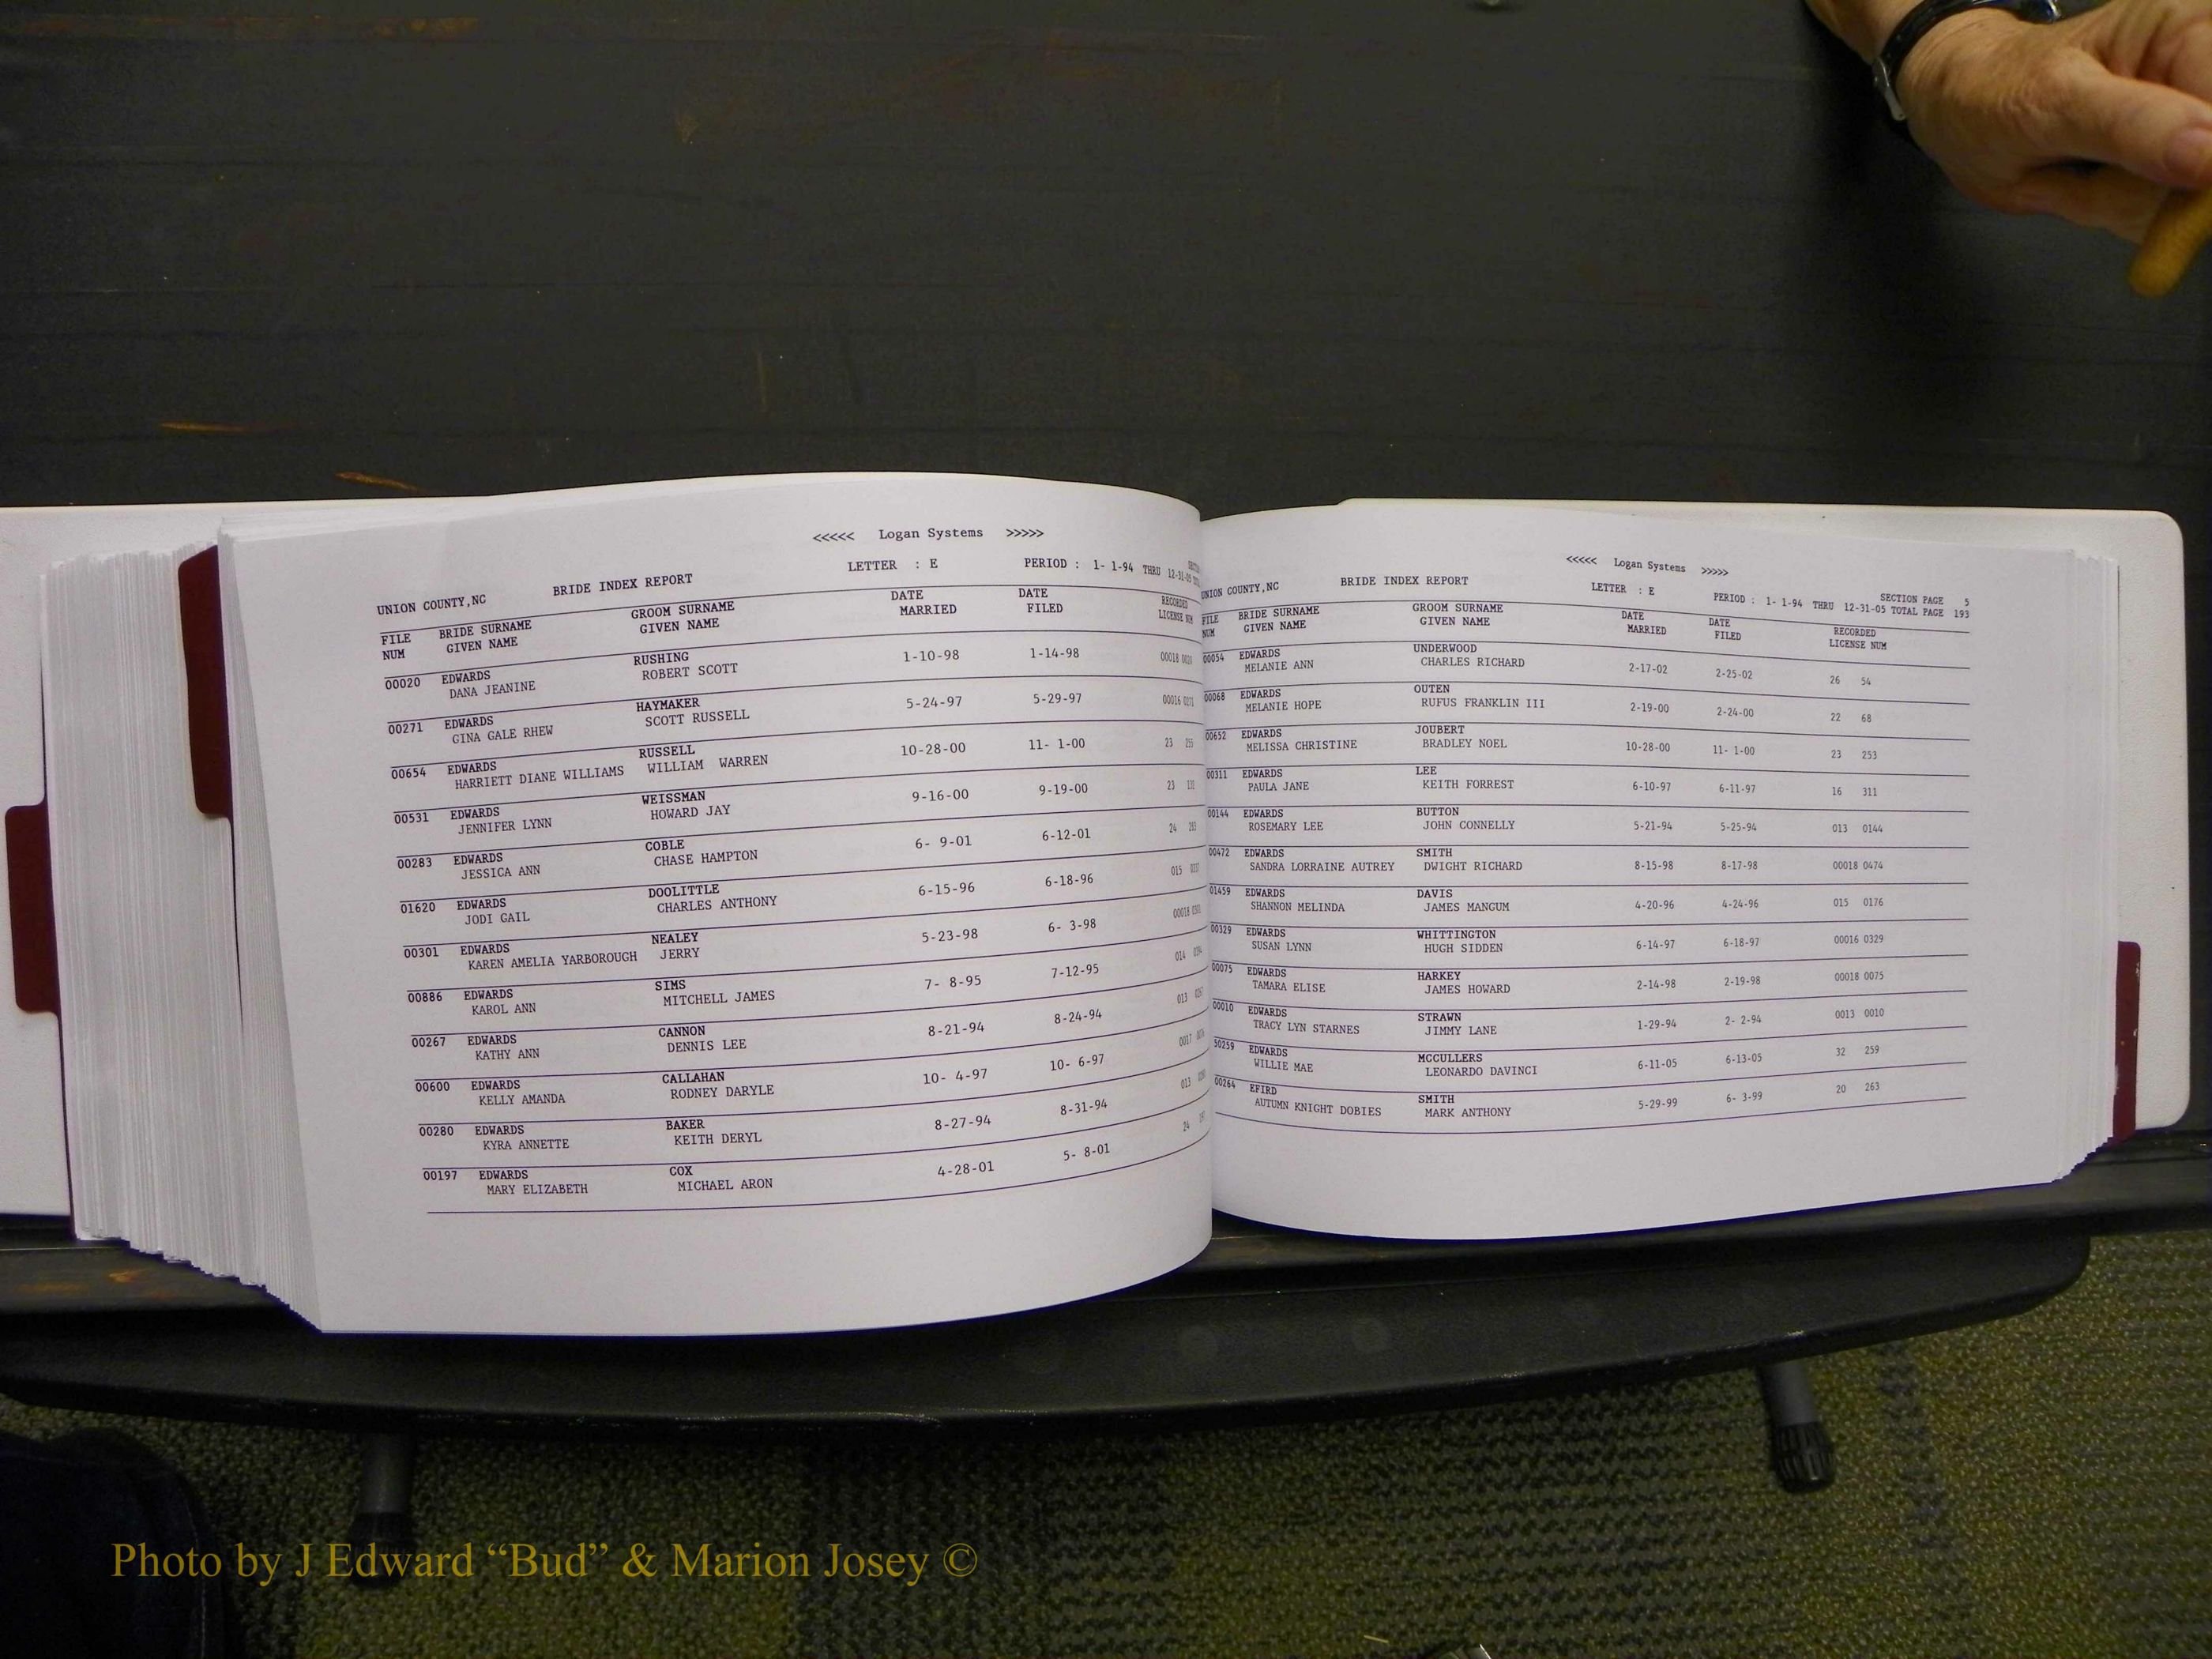 <<<<< Logan Systems >>>>>
UNION COUNTY,NC BRIDE INDEX REPORT LETTER : E PERIOD : 1- 1-94 THRU 12-31-05
FILE BRIDE SURNAME GROOM SURNAME DATE DATE RECORDED
NUM GIVEN NAME GIVEN NAME MARRIED FILED LICENSE NUM
00020 EDWARDS RUSHING 1-10-98 1-14-98 00018
DANA JEANINE ROBERT SCOTT
00271 EDWARDS HAYMAKER 5-24-97 5-29-97 00016 0271
GINA GALE RHEW SCOTT RUSSELL
00654 EDWARDS RUSSELL 10-28-00 11- 1-00 23
HARRIETT DIANE WILLIAMS WILLIAM WARREN
00531 EDWARDS WEISSMAN 9-16-00 9-19-00 23
JENNIFER LYNN HOWARD JAY
00283 EDWARDS COBLE 6- 9-01 6-12-01 24
JESSICA ANN CHASE HAMPTON
01620 EDWARDS DOOLITTLE 6-15-96 6-18-96 015
JODI GAIL CHARLES ANTHONY
00301 EDWARDS NEALEY 5-23-98 6- 3-98 00018
KAREN AMELIA YARBOROUGH JERRY
00886 EDWARDS SIMS 7- 8-95 7-12-95 014
KAROL ANN MITCHELL JAMES
00267 EDWARDS CANNON 8-21-94 8-24-94 013
KATHY ANN DENNIS LEE
00600 EDWARDS CALLAHAN 10- 4-97 10- 6-97 0017
KELLY AMANDA RODNEY DARYLE
00280 EDWARDS BAKER 8-27-94 8-31-94 013
KYRA ANNETTE KEITH DERYL
00197 EDWARDS COX 4-28-01 5- 8-01 24
MARY ELIZABETH MICHAEL ARON
<<<<< Logan Systems >>>>>
SECTION PAGE 5
UNION COUNTY,NC BRIDE INDEX REPORT LETTER : E PERIOD : 1- 1-94 THRU 12-31-05 TOTAL PAGE 193
FILE BRIDE SURNAME GROOM SURNAME DATE DATE RECORDED
NUM GIVEN NAME GIVEN NAME MARRIED FILED LICENSE NUM
00054 EDWARDS UNDERWOOD 2-17-02 2-25-02 26 54
MELANIE ANN CHARLES RICHARD
00068 EDWARDS OUTEN 2-19-00 2-24-00 22 68
MELANIE HOPE RUFUS FRANKLIN III
00652 EDWARDS JOUBERT 10-28-00 11- 1-00 23 253
MELISSA CHRISTINE BRADLEY NOEL
00311 EDWARDS LEE 6-10-97 6-11-97 16 311
PAULA JANE KEITH FORREST
00144 EDWARDS BUTTON 5-21-94 5-25-94 013 0144
ROSEMARY LEE JOHN CONNELLY
00472 EDWARDS SMITH 8-15-98 8-17-98 00018 0474
SANDRA LORRAINE AUTREY DWIGHT RICHARD
01459 EDWARDS DAVIS 4-20-96 4-24-96 015 0176
SHANNON MELINDA JAMES MANGUM
00329 EDWARDS WHITTINGTON 6-14-97 6-18-97 00016 0329
SUSAN LYNN HUGH SIDDEN
00075 EDWARDS HARKEY 2-14-98 2-19-98 00018 0075
TAMARA ELISE JAMES HOWARD
00010 EDWARDS STRAWN 1-29-94 2- 2-94 0013 0010
TRACY LYN STARNES JIMMY LANE
50259 EDWARDS MCCULLERS 6-11-05 6-13-05 32 259
WILLIE MAE LEONARDO DAVINCI
00264 EFIRD SMITH 5-29-99 6- 3-99 20 263
AUTUMN KNIGHT DOBIES MARK ANTHONY
Photo by J Edward “Bud” & Marion Josey ©